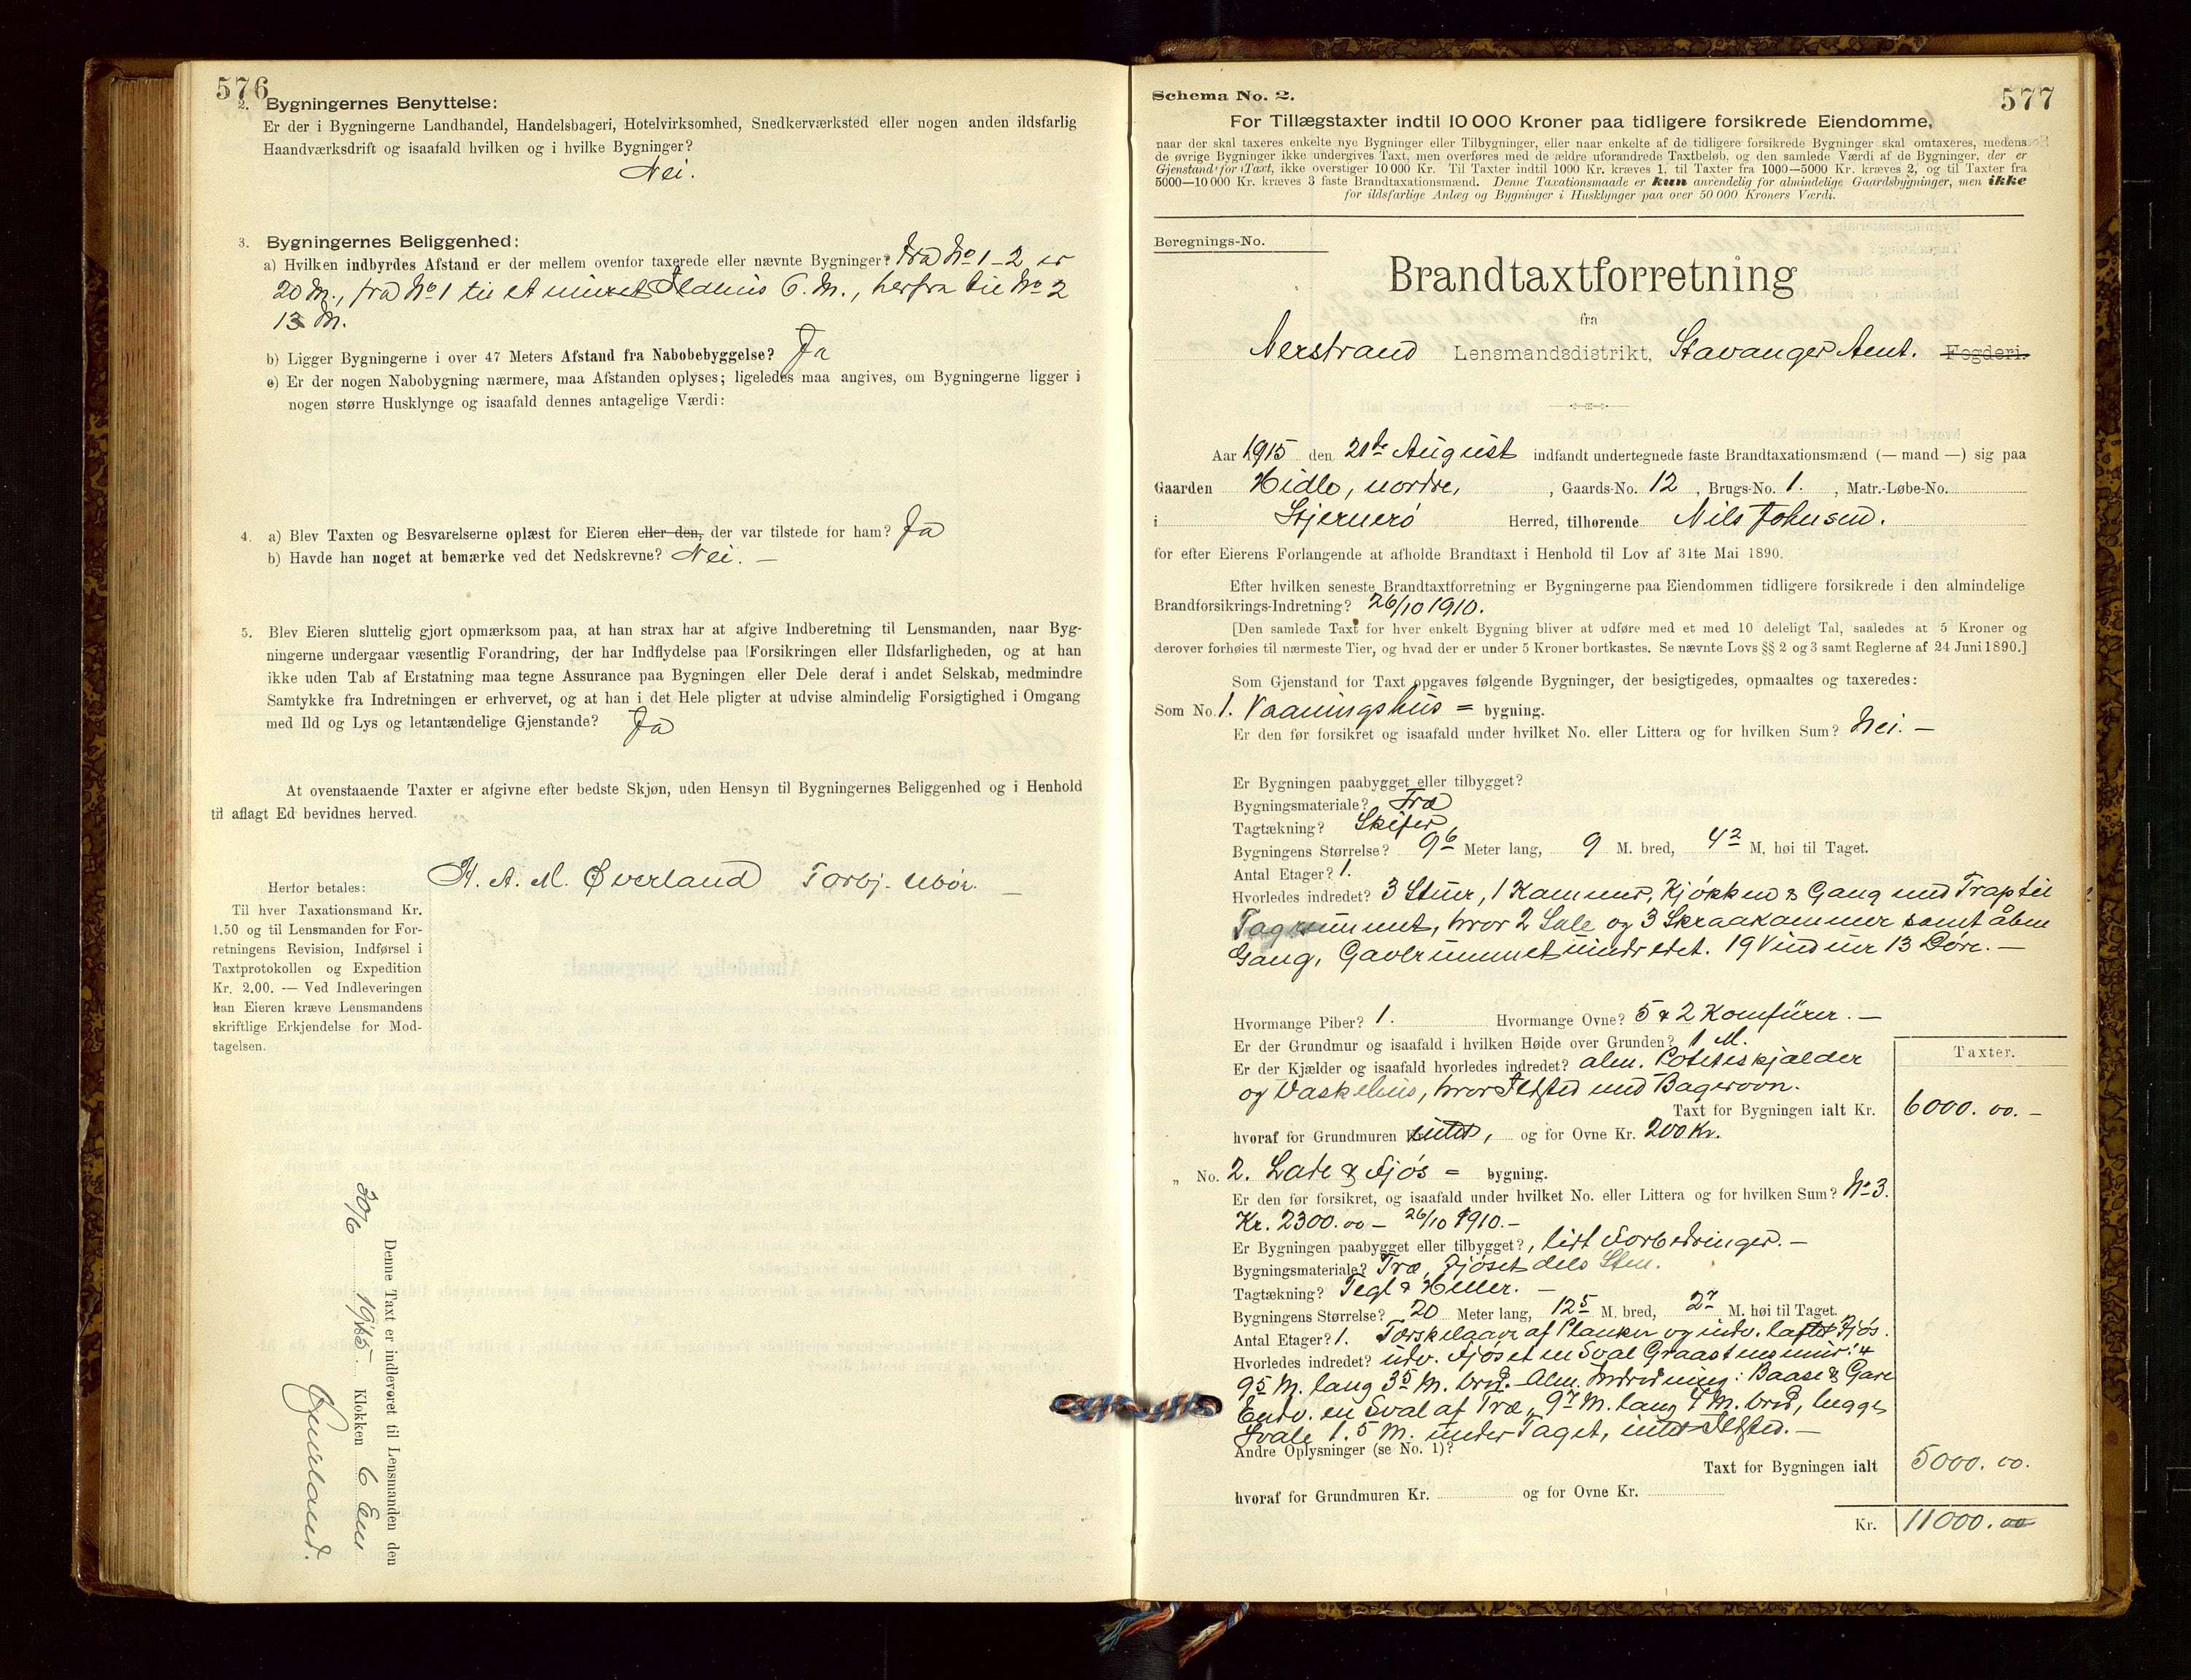 576
2. Bygningernes Benyttelse:
Er der i Bygningerne Landhandel, Handelsbageri, Hotelvirksomhed, Snedkerværksted eller nogen anden ildsfarlig
Haandværksdrift og isaafald hvilken og i hvilke Bygninger?
Nei.
3. Bygningernes Beliggenhed:
a) Hvilken indbyrdes Afstand er der mellem ovenfor taxerede eller nævnte Bygninger? Fra No 1-2 er
20 M., fra No 1 til et muret Ildhus 6. M., herfra til No 2
13 M.
b) Ligger Bygningerne i over 47 Meters Afstand fra Nabobebyggelse? Ja
c) Er der nogen Nabobygning nærmere, maa Afstanden oplyses; ligeledes maa angives, om Bygningerne ligger i
nogen større Husklynge og isaafald dennes antagelige Værdi:
4. a) Blev Taxten og Besvarelserne oplæst for Eieren eller den, der var tilstede for ham? Ja
b) Havde han noget at bemærke ved det Nedskrevne? Nei. —
5. Blev Eieren sluttelig gjort opmærksom paa, at han strax har at afgive Indberetning til Lensmanden, naar Byg-
ningerne undergaar væsentlig Forandring, der har Indflydelse paa Forsikringen eller Ildsfarligheden, og at han
ikke uden Tab af Erstatning maa tegne Assurance paa Bygningen eller Dele deraf i andet Selskab, medmindre
Samtykke fra Indretningen er erhvervet, og at han i det Hele pligter at udvise almindelig Forsigtighed i Omgang
med Ild og Lys og letantændelige Gjenstande? Ja
At ovenstaaende Taxter er afgivne efter bedste Skjøn, uden Hensyn til Bygningernes Beliggenhed og i Henhold
til aflagt Ed bevidnes herved.
H. A. M. Øverland Torbj. Ubør. —
Herfor betales:
Til hver Taxationsmand Kr.
1.50 og til Lensmanden for For-
retningens Revision, Indførsel i
Taxtprotokollen og Expedition
Kr. 2.00. — Ved Indleveringen
kan Eieren kræve Lensmandens
skriftlige Erkjendelse for Mod-
tagelsen.
Denne Taxt er indleveret til Lensmanden den
30/6 1915 Klokken 6 Em
Øverland.
577
Schema No. 2.
For Tillægstaxter indtil 10 000 Kroner paa tidligere forsikrede Eiendomme,
naar der skal taxeres enkelte nye Bygninger eller Tilbygninger, eller naar enkelte af de tidligere forsikrede Bygninger skal omtaxeres, medens
de øvrige Bygninger ikke undergives Taxt, men overføres med de ældre uforandrede Taxtbeløb, og den samlede Værdi af de Bygninger, der er
Gjenstand for Taxt, ikke overstiger 10 000 Kr. Til Taxter indtil 1000 Kr. kræves 1, til Taxter fra 1000—5000 Kr. kræves 2, og til Taxter fra
5000—10 000 Kr. kræves 3 faste Brandtaxationsmænd. Denne Taxationsmaade er kun anvendelig for almindelige Gaardsbygninger, men ikke
for ildsfarlige Anlæg og Bygninger i Husklynger paa over 50 000 Kroners Værdi.
Beregnings-No.
Brandtaxtforretning
fra
Nerstrand Lensmandsdistrikt, Stavanger Amt. Fogderi.
Aar 1915 den 21de August indfandt undertegnede faste Brandtaxationsmænd (— mand —) sig paa
Gaarden Hidle, nordre, , Gaards-No. 12 , Brugs-No. 1. , Matr.-Løbe-No.
i Stjernerø Herred, tilhørende Nils Johnsen.
for efter Eierens Forlangende at afholde Brandtaxt i Henhold til Lov af 31te Mai 1890.
Efter hvilken seneste Brandtaxtforretning er Bygningerne paa Eiendommen tidligere forsikrede i den almindelige
Brandforsikrings-Indretning? 26/10 1910.
[Den samlede Taxt for hver enkelt Bygning bliver at udføre med et med 10 deleligt Tal, saaledes at 5 Kroner og
derover forhøies til nærmeste Tier, og hvad der er under 5 Kroner bortkastes. Se nævnte Lovs §§ 2 og 3 samt Reglerne af 24 Juni 1890.]
Som Gjenstand for Taxt opgaves følgende Bygninger, der besigtigedes, opmaaltes og taxeredes:
Som No. 1. Vaaningshus = bygning.
Er den før forsikret og isaafald under hvilket No. eller Littera og for hvilken Sum? Nei. —
Er Bygningen paabygget eller tilbygget?
Bygningsmateriale? Træ
Tagtækning? Skifer
Bygningens Størrelse? 9 6 Meter lang, 9 M. bred, 4 2 M. høi til Taget.
Antal Etager? 1.
Hvorledes indredet? 3 Stuer, 1 Kammer, Kjøkken & Gang med Trap til
Tagrummet, hvor 2 Sale og 3 Skraakammer samt åben
Gang, Gavlrummet uindredet. 19 Vinduer 13 Døre. —
Hvormange Piber? 1. Hvormange Ovne? 5 & 2 Komfürer. —
Er der Grundmur og isaafald i hvilken Høide over Grunden? 1 M.
Er der Kjælder og isaafald hvorledes indredet? alm. Poteteskjælder
og Vaskehus, hvor Ildsted med Bagerovn.
Taxter.
Taxt for Bygningen ialt Kr. 6000. 00. —
hvoraf for Grundmuren intet, og for Ovne Kr. 200 Kr.
„ No. 2. Lade & Fjøs = bygning.
Er den før forsikret, og isaafald under hvilket No. eller Littera og for hvilken Sum? No 3.
Kr. 2300.00 — 26/10 1910. —
Er Bygningen paabygget eller tilbygget?, lidt Forbedringer. —
Bygningsmateriale? Træ, Fjøset dels Sten.
Tagtækning? Tegl & Heller. —
Bygningens Størrelse? 20 Meter lang, 12 5 M. bred, 2 7 M. høi til Taget.
Antal Etager? 1. Tærskelaave af Planker og indv. laftet Fjøs.
Hvorledes indredet? udv. Fjøset en Sval Graastensmur: 4
9 5 M. lang 3 5 M. bred. Alm. Indredning: Baase & Gare
Endv. en Sval af Træ, 9 7 M. lang 4 M. bred, begge
Svale 1.5 M. under Taget, intet Ildsted. —
Andre Oplysninger (se No. 1)?
Taxt for Bygningen ialt 5000. 00.
hvoraf for Grundmuren Kr. og for Ovne Kr.
Kr. 11000. 00